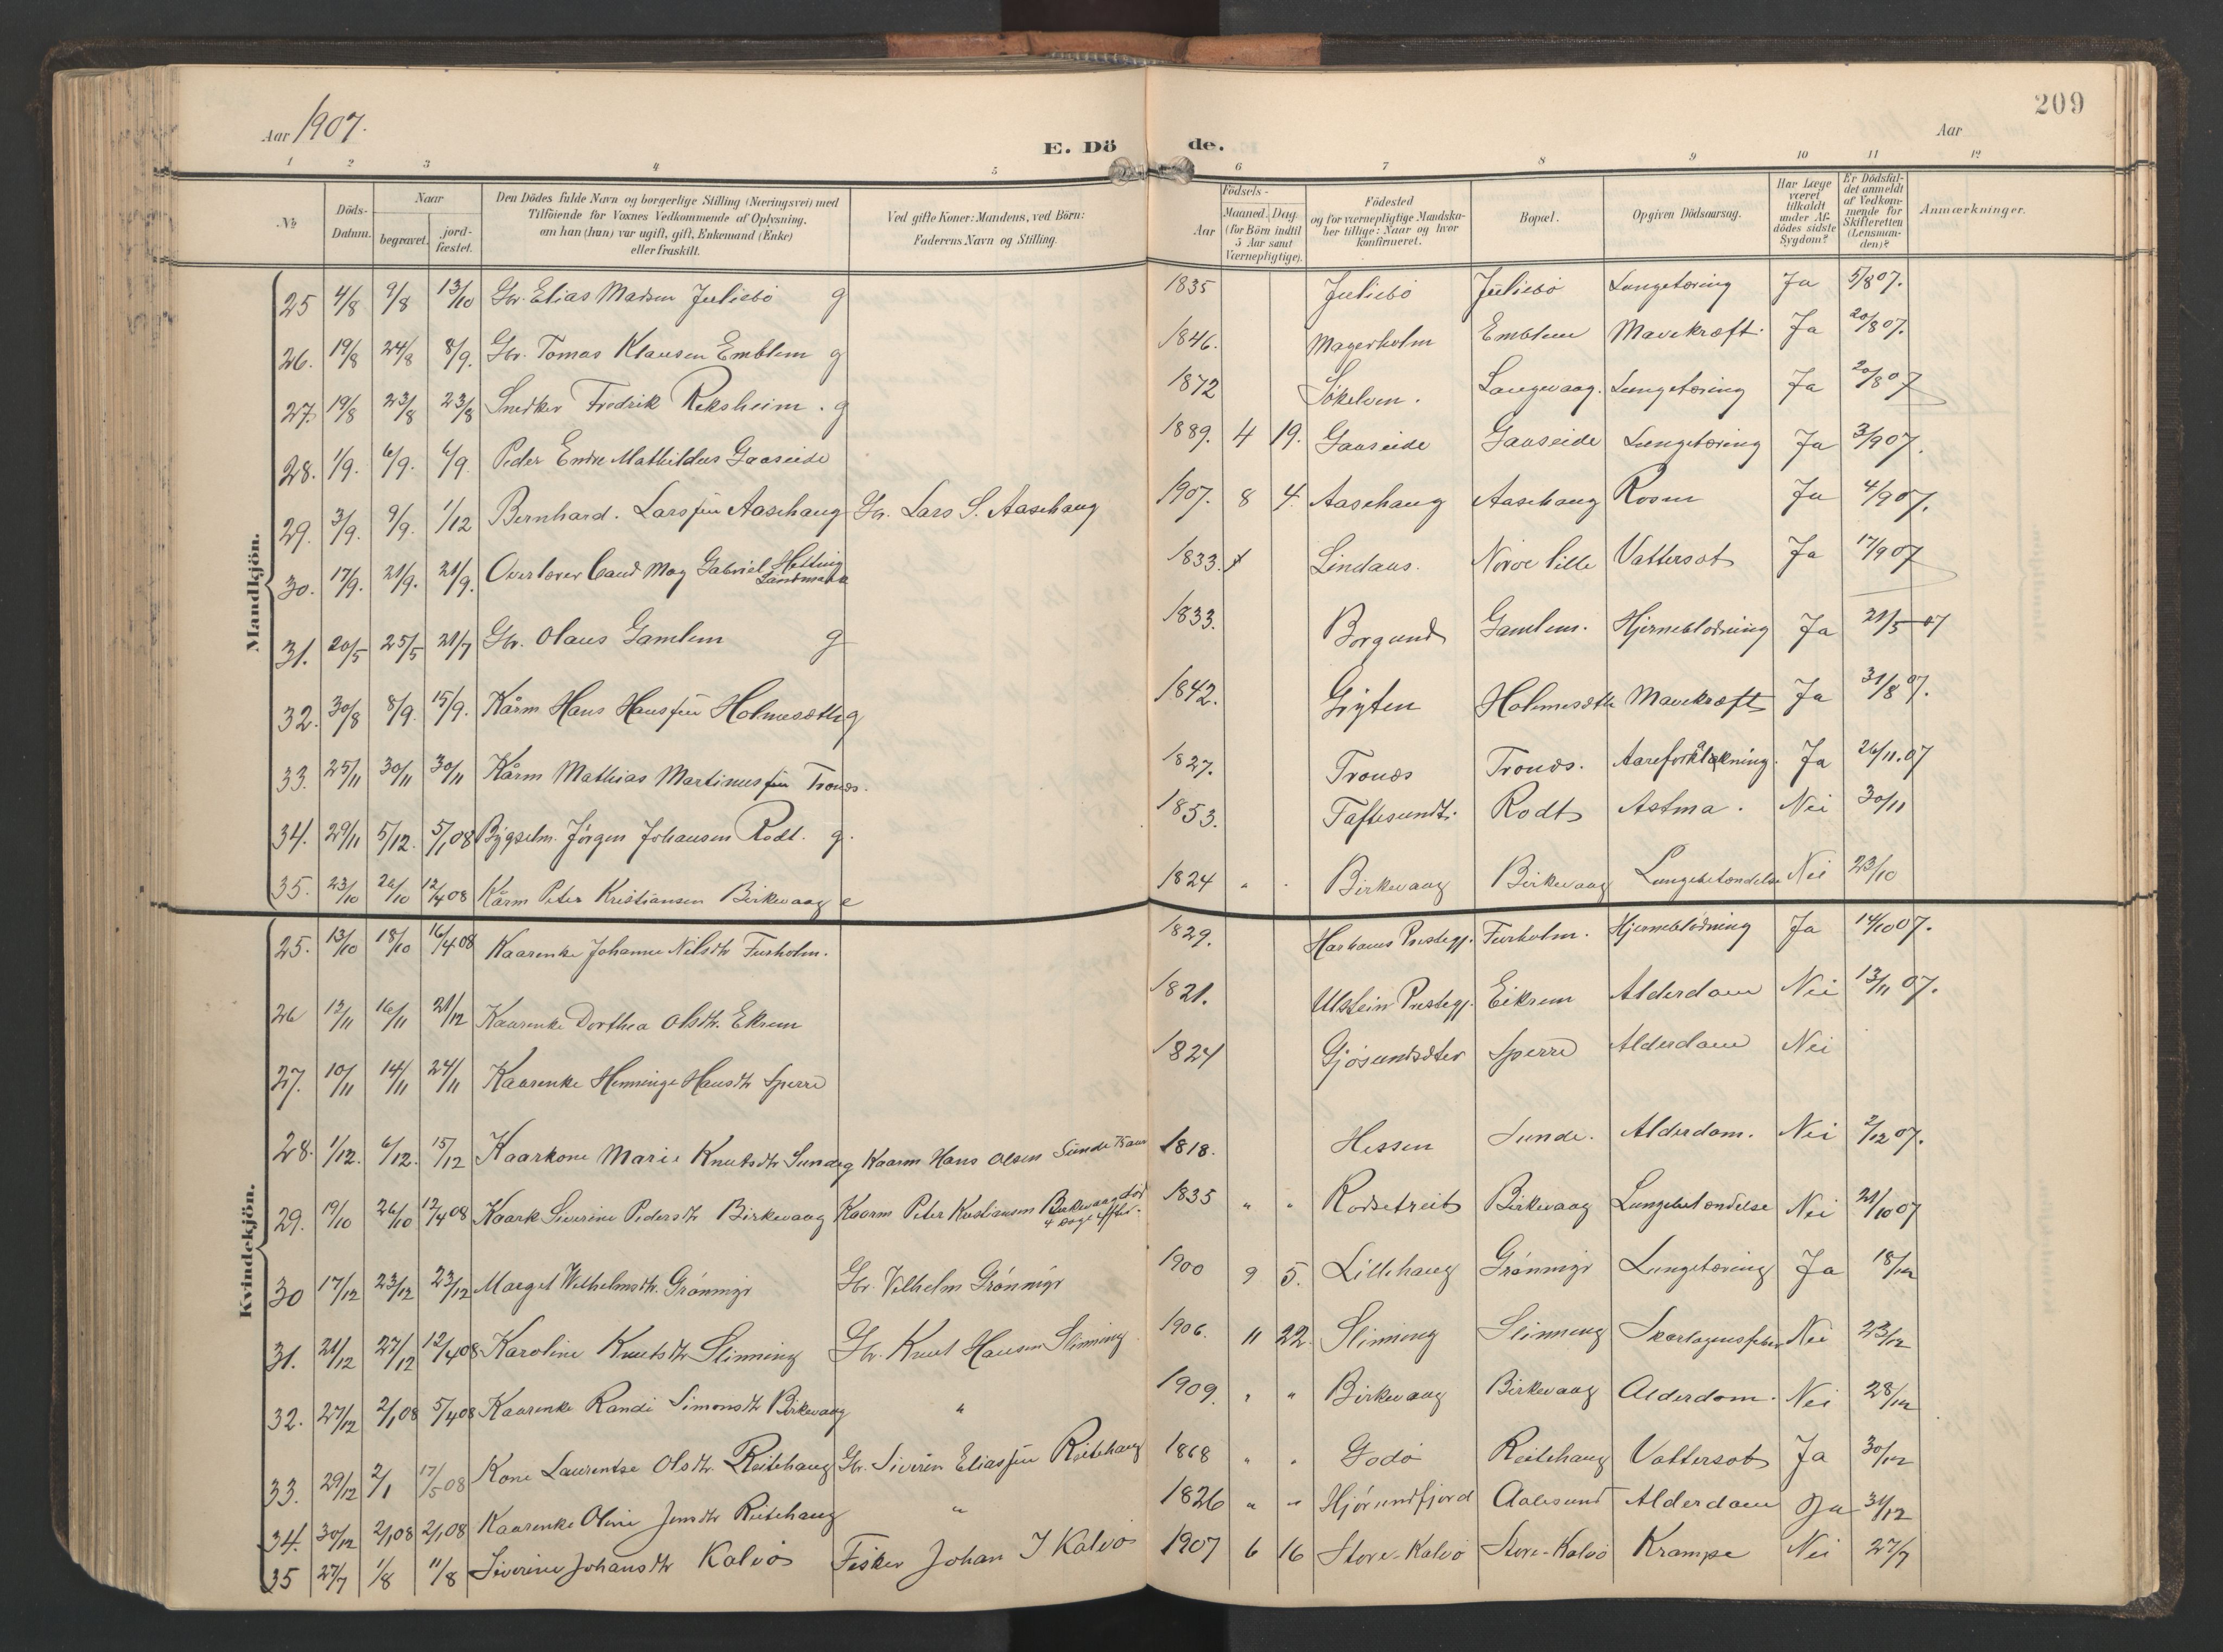 209
Aar 1907.
Aar
E. Dö de.
1 2 3 4 5 6 7 8 9 10 11 12
No
Döds-Datum.
Naar
begravet.
jord-fæstet.
Den Dödes fulde Navn og borgerlige Stilling (Næringsvei) med
Tilföiende for Voxnes Vedkommende af Oplysning,
om han (hun) var ugift, gift, Enkemand (Enke)
eller fraskilt.
Ved gifte Koner: Mandens, ved Börn:
Faderens Navn og Stilling.
Födsels-
Aar
Maaned. Dag.
(for Börn indtil
5 Aar samt
Værnepligtige).
Födested
og for værnepligtige Mandska-
ber tillige: Naar og hvor
konfirmeret.
Bopæl.
Opgiven Dödsaarsag.
Har Læge
været
tilkaldt
under Af-
dödes sidste
Sygdom?
Er Dödsfal-
det anmeldt
af Vedkom-
mende for
Skifteretten
(Lensman-
den)?
Anmærkninger.
Mandkjön.
25 4/8 9/8 13/10 Gbr. Elias Madsen Juliebö g 1835 Juliebö Juliebö Lungetæring Ja 5/8 07.
26. 19/8 24/8 8/9. Gbr. Tomas Klausen Emblem g 1846. Magerholm Emblem Mavekræft. Ja 20/8 07.
27. 19/8 23/8 23/8 Snedker Fredrik Reksheim. g 1872 Søkelven. Langevaag. Lungetæring Ja 20/8 07
28. 1/9. 6/9. 6/9. Peder Endre Mathildus Gaaseide 1889. 4 19. Gaaseide Gaaseide Lungetæring Ja 3/9 07.
29. 3/9. 9/9. 1/12 Bernhard. Larssön Aasehaug Gbr. Lars S. Aasehaug 1907. 8 4. Aasehaug Aasehaug Rosen Ja 4/9 07.
30. 17/9. 21/9. 21/9. Overlærer Cand Mag Gabriel Helting Landmark 1833. Lindaas. Nørve Vattersot Ja 17/9 07
31. 20/5 25/5 21/7 Gbr. Olaus Gamlem g 1833. Borgund Gamlem. Hjerneblødning Ja 21/5 07
32. 30/8 8/9. 15/9. Kårm Hans Hanssön Holmesæthr g 1842. Gryten Holmesæthr Mavekræft Ja 31/8 07.
33. 25/11 30/11 30/11 Kårm Mathias Martinussøn Tronds. 1827. Tronds Tronds. Aareforkalkning. Ja 26/11.07
34. 29/11 5/12. 5/1 08 Bygselm. Jørgen Johansen Rødt. g. 1853. Taftesundt. Rødt Astma. Nei 30/11
35. 23/10 12/4 08 Kårm Peter Kristiansen Birkevaag e 1824 " " Birkevaag Birkevaag Lungebetændelse Nei 23/10
Kvindekjön.
25. 13/10 18/10 16/4 08 Kaarenke Johanne Nilsdtr Furholm. 1829. Harhams Prestegj. Furholm. Hjerneblødning Ja 14/10 07.
26 12/11 16/11 21/12 Kaarenke Dorthea Olsdtr. Ekrem 1821. Ulstein Prestegj. Eikrem Alderdom Nei 13/11 07.
27. 10/11 14/11 24/11 Kaarenke Henninge Hansdtr Sperre 1824 Sperre Alderdom Nei
28. 1/12. 6/12. 15/12 Kaarkone Marie Knutsdtr Sunde g Kaarm Hans Olsen Sunde 1818. Hessen Sunde. Alderdom. Nei 2/12 07.
29. 19/10 26/10 12/4 08 Kaark Siverine Pedersdtr Birkevaag Kaarm Peter Kristiansen Birkevaag død 4 dage efter. 1835 " " Rødsetreit Birkevaag Lungebetændelse Nei 21/10 07
30 17/12 23/12 23/12 Marget Wilhelmsdtr. Grønmyr Gbr. Vilhelm Grønmyr 1900 9 5. Lillehaug Grønmyr Lungetæring Ja 18/12
31. 21/12 27/12 12/4 08 Karoline Knutsdtr Slinning Gbr. Knut Hansen Slinning 1906. 11 22. Slinning Slinning Skarlagensfeber Nei 23/12
32. 27/12 2/1 08 5/4 08 Kaarenke Randi Simonsdtr Birkevaag " 1909. " " Birkevaag Birkevaag Alderdom. Nei 28/12
33. 29/12 2/1 17/5 08 Kone Laurentse Olsdtr. Reitehaug Gbr. Siverin Eliassøn Reitehaug 1868 " " Godö Reitehaug Vattersot Ja 30/12
34. 30/12 2/1 08 2/1 08 Kaarenke Oline Jensdtr Reitehaug " 1826 " " Hjørundfjord Aalesund Alderdom Ja 31/12
35 27/7 1/8 11/8 Siverine Johansdtr Kalvö Fisker Johan J Kalvö 1907 6 16 Store-Kalvö Store-Kalvö Krampe Nei 27/7